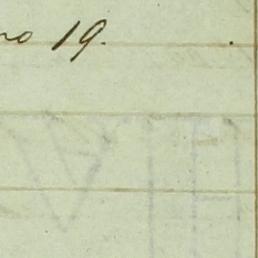 no 19.